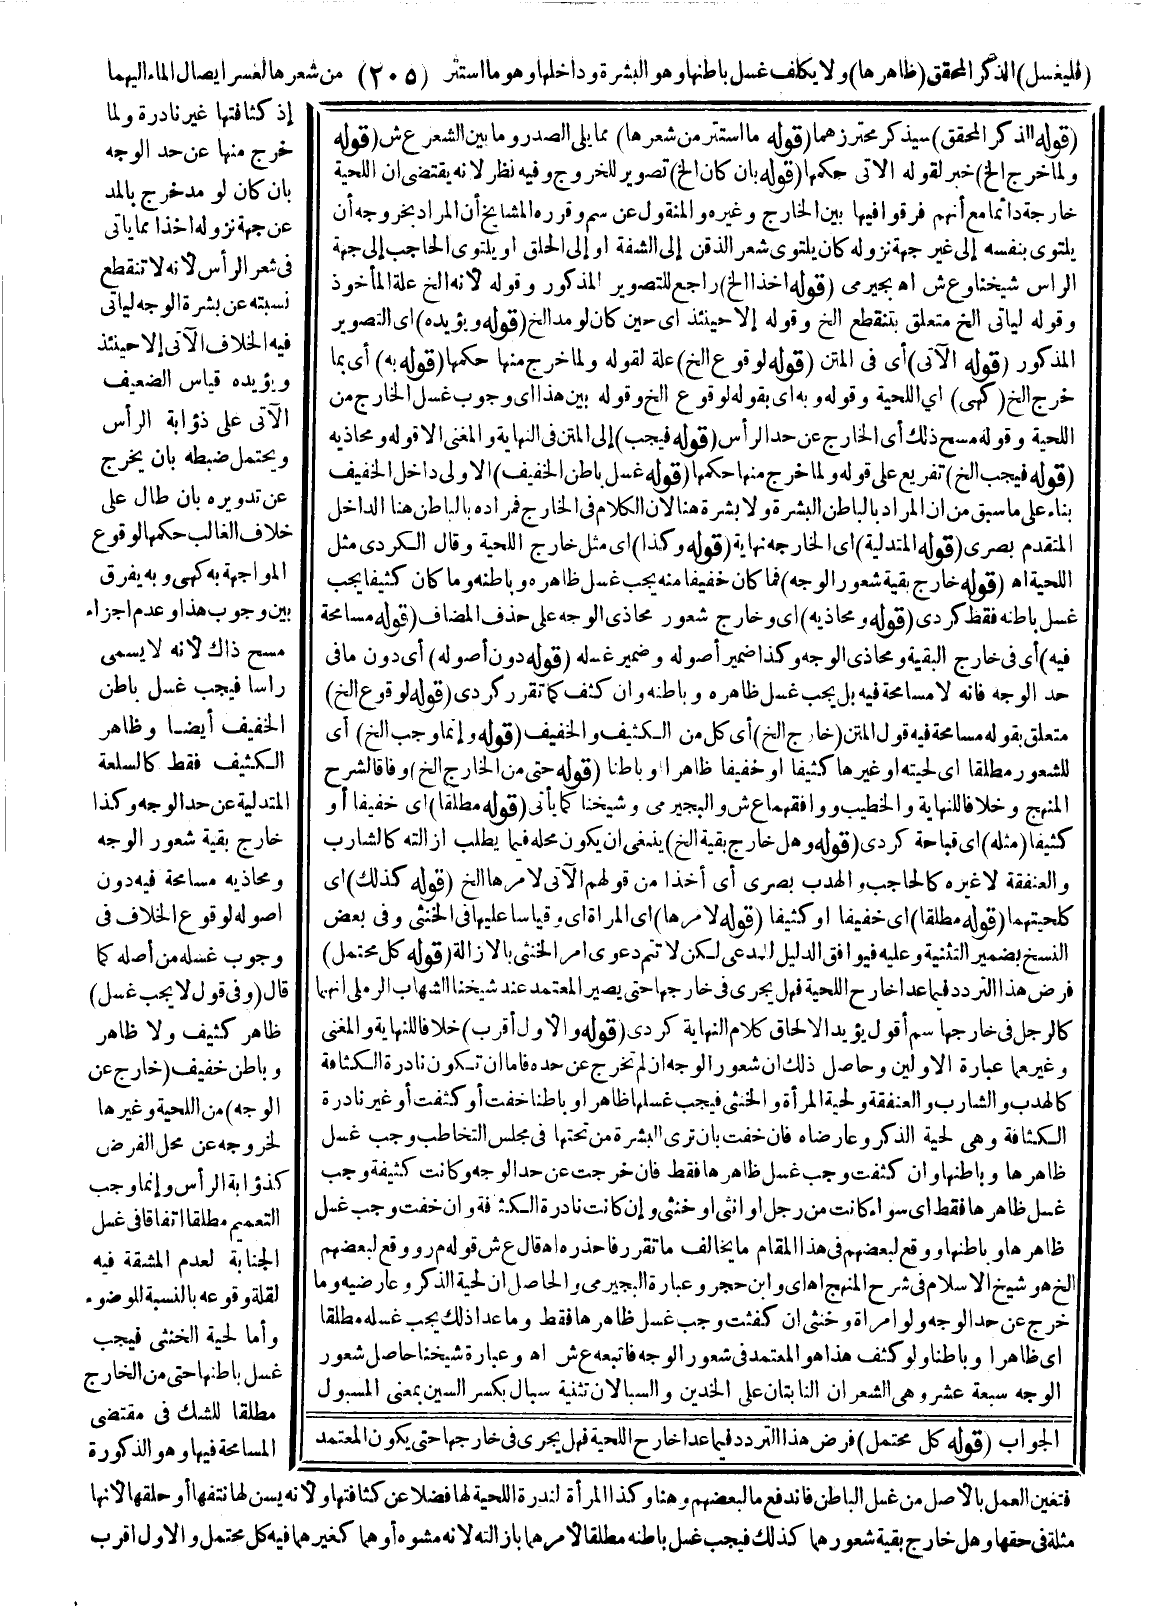 (فليغسل) الذكر المحقق (ظاهرها) ولا يكلف غسل باطنها وهو البشرة وداخلها وهو ما استتر (٢٠٥) من شعرها لعسر ايصال الماء اليهما
إذ كثافتها غير نادرة ولما
خرج منها عن حد الوجه
بان كان لو مد خرج بالمد
عن جهة نزوله اخذا مما ياتى
فى شعر الرأس لانه لا تنقطع
نسبته عن بشرة الوجه لياتى
فيه الخلاف الآتى إلا حينئذ
ويؤيده قياس الضعيف
الآتى على ذؤابة الرأس
ويحتمل ضبطه بان يخرج
عن تدويره بان طال على
خلاف الغالب حكمها لوقوع
المواجهة به كهى وبه يفرق
بين وجوب هذا وعدم اجزاء
مسح ذاك لانه لا يسمى
راسا فيجب غسل باطن
الخفيف أيضا وظاهر
الكثيف فقط كالسلعة
المتدلية عن حد الوجه وكذا
خارج بقية شعور الوجه
ومحاذيه مسامحة فيه دون
اصوله لوقوع الخلاف فى
وجوب غسله من أصله كما
قال (وفى قول لا يجب غسل)
ظاهر كثيف ولا ظاهر
وباطن خفيف (خارج عن
الوجه) من اللحية وغيرها
لخروجه عن محل الفرض
كذؤابة الرأس وإنما وجب
التعميم مطلقا اتفاقا فى غسل
الجنابة لعدم المشقة فيه
لقلة وقوعه بالنسبة للوضوء
وأما لحية الخنثى فيجب
غسل باطنها حتى من الخارج
مطلقا للشك فى مقتضى
المسامحة فيها وهو الذكورة
فتعين العمل بالاصل من غسل الباطن فاندفع ما لبعضهم وهنا وكذا المرأة لندرة اللحية لها فضلا عن كثافتها ولانه يسن لها نتفها أو حلقها لانها
مثلة فى حقها وهل خارج بقية شعورهما كذلك فيجب غسل باطنه مطلقا لامرهما بازالته لانه مشوه أو هما كغيرهما فيه كل محتمل والاول اقرب
(قوله الذكر المحقق) سيذكر محترزهما (قوله ما استتر من شعرها) مما يلى الصدر وما بين الشعر ع ش (قوله
ولما خرج الخ) خبر لقوله الاتى حكمها (قوله بان كان الخ) تصوير للخروج وفيه نظر لانه يقتضى ان اللحية
خارجة دائما مع أنهم فرقوا فيها بين الخارج وغيره والمنقول عن سم وقرره المشايخ أن المراد بخروجه أن
يلتوى بنفسه إلى غير جهة نزوله كان يلتوى شعر الذقن إلى الشفة او إلى الحلق او يلتوى الحاجب إلى جهة
الراس شيخنا وع ش اه بجيرمى (قوله اخذا الخ) راجع للتصوير المذكور وقوله لانه الخ علة المأخوذ
وقوله لياتى الخ متعلق بتنقطع الخ وقوله إلا حينئذ اى حين كان لو مد الخ (قوله ويؤيده) اى التصوير
المذكور (قوله الآتى) أى فى المتن (قوله لوقوع الخ) علة لقوله ولما خرج منها حكمها (قوله به) أى بما
خرج الخ (كهى) اي اللحية وقوله وبه اى بقوله لوقوع الخ وقوله بين هذا اى وجوب غسل الخارج من
اللحية وقوله مسح ذلك أى الخارج عن حد الرأس (قوله فيجب) إلى المتن فى النهاية والمغنى الا قوله ومحاذيه
(قوله فيجب الخ) تفريع على قوله ولما خرج منها حكمها (قوله غسل باطن الخفيف) الاولى داخل الخفيف
بناء على ما سبق من ان المراد بالباطن البشرة ولا بشرة هنا لان الكلام فى الخارج فمراده بالباطن هنا الداخل
المتقدم بصرى (قوله المتدلية) اى الخارجه نهاية (قوله وكذا) اى مثل خارج اللحية وقال الكردى مثل
اللحية اه (قوله خارج بقية شعور الوجه) فما كان خفيفا منه يجب غسل ظاهره وباطنه وما كان كثيفا يجب
غسل باطنه فقط كردى (قوله ومحاذيه) اى وخارج شعور محاذى الوجه على حذف المضاف (قوله مسامحة
فيه) أى فى خارج البقية ومحاذى الوجه وكذا ضمير أصوله وضمير غسله (قوله دون أصوله) أى دون ما فى
حد الوجه فانه لا مسامحة فيه بل يجب غسل ظاهره وباطنه وان كثف كما تقرر كردى (قوله لوقوع الخ)
متعلق بقوله مسامحة فيه قول المتن (خارج الخ) أى كل من الكثيف والخفيف (قوله وإنما وجب الخ) أى
للشعور مطلقا اى لحيته او غيرها كثيفا او خفيفا ظاهرا وباطنا (قوله حتى من الخارج الخ) وفاقا لشرح
المنهج وخلافا للنهاية والخطيب ووافقهما ع ش والبجيرمى وشيخنا كما يأتى (قوله مطلقا) اى خفيفا أو
كثيفا (مثله) اى قباحة كردى (قوله وهل خارج بقية الخ) ينبغى ان يكون محله فيما يطلب ازالته كالشارب
والعنفقة لا غيره كالحاجب والهدب بصرى أى أخذا من قولهم الآتى لامرها الخ (قوله كذلك) اى
كلحيتهما (قوله مطلقا) اى خفيفا او كثيفا (قوله لامرها) اى المراة اى وقياسا عليها فى الخنثى وفى بعض
النسخ بضمير التثنية وعليه فيوافق الدليل المدعى لكن لا تتم دعوى امر الخنثى بالازالة (قوله كل محتمل)
فرض هذا التردد فيما عدا خارج اللحية فهل يجرى فى خارجها حتى يصير المعتمد عند شيخنا الشهاب الرملى انهما
كالرجل فى خارجها سم أقول يؤيد الالحاق كلام النهاية كردى (قوله والاول أقرب) خلافا للنهاية والمغنى
وغيرهما عبارة الاولين وحاصل ذلك ان شعور الوجه ان لم تخرج عن حده فاما ان تكون نادرة الكثافة
كالهدب والشارب والعنفقة ولحية المرأة والخنثى فيجب غسلها ظاهرا وباطنا خفت أو كثفت أو غير نادرة
الكثافة وهى لحية الذكر وعارضاه فان خفت بان ترى البشرة من تحتها فى مجلس التخاطب وجب غسل
ظاهرها وباطنها وان كثفت وجب غسل ظاهرها فقط فان خرجت عن حد الوجه وكانت كثيفة وجب
غسل ظاهرها فقط اى سواء كانت من رجل او انثى او خنثى وإن كانت نادرة الكثافة وان خفت وجب غسل
ظاهرها وباطنها ووقع لبعضهم فى هذا المقام ما يخالف ما تقرر فاحذره اه قال ع ش قوله م ر ووقع لبعضهم
الخ هو شيخ الاسلام فى شرح المنهج اه اى وابن حجر وعبارة البجيرمى والحاصل ان لحية الذكر وعارضيه وما
خرج عن حد الوجه ولو امراة وخنثى ان كثفت وجب غسل ظاهرها فقط وما عدا ذلك يجب غسله مطلقا
اى ظاهرا وباطنا ولو كثف هذا هو المعتمد فى شعور الوجه فاتبعه ع ش اه وعبارة شيخنا حاصل شعور
الوجه سبعة عشر وهى الشعر ان النابتان على الخدين والسبالان تثنية سبال بكسر السين بمعنى المسبول
الجواب (قوله كل محتمل) فرض هذا التردد فيما عدا خارج اللحية فهل يجرى فى خارجها حتى يكون المعتمد